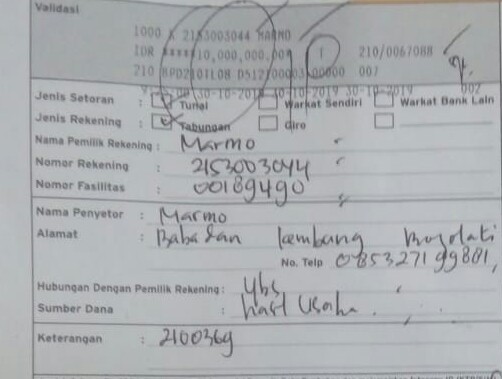 Validasi
1000 K 2153003044 MARMO
IDR *****10,000,000.00 210/0067088
210 D512 00003 00000 007
30-10-2019 30-10-2019 30-10-2019 002
Jenis Setoran : Tunai Warkat Sendiri Warkat Bank Lain
Jenis Rekening : Tabungan Giro
Nama Pemilik Rekening : Marmo
Nomor Rekening : 2153003044
Nomor Fasilitas : 00189490
Nama Penyetor : Marmo
Alamat : Babadan kembang Boyolali
No. Telp 085327199881,
Hubungan Dengan Pemilik Rekening : Ybs
Sumber Dana : hasl Usaha
Keterangan : 2100369